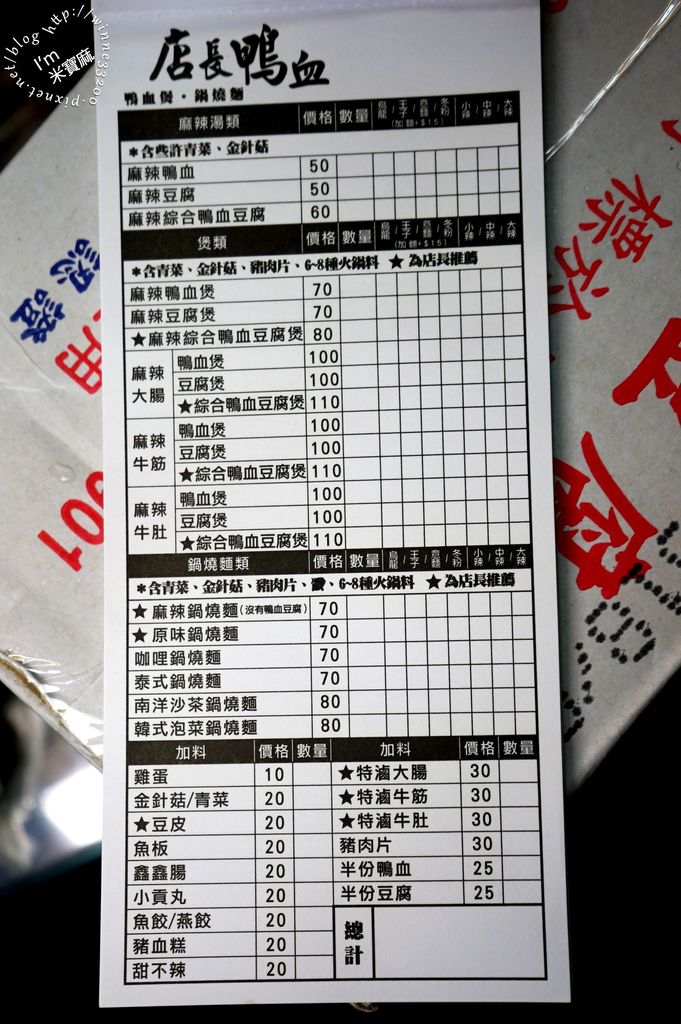 http://winne33200.pixnet.net/blog
I'm
米寶麻
店長鴨血
鴨血煲·鍋燒麵
麻辣湯類 價格 數量 烏龍/王子/意麵/冬粉 (加麵+$15) 小辣/中辣/大辣
*含些許青菜、金針菇
麻辣鴨血 50
麻辣豆腐 50
麻辣綜合鴨血豆腐 60
煲類 價格 數量 烏龍/王子/意麵/冬粉 (加麵+$15) 小辣/中辣/大辣
*含青菜、金針菇、豬肉片、6~8種火鍋料 ★為店長推薦
麻辣鴨血煲 70
麻辣豆腐煲 70
★麻辣綜合鴨血豆腐煲 80
麻辣大腸 鴨血煲 100
豆腐煲 100
★綜合鴨血豆腐煲 110
麻辣牛筋 鴨血煲 100
豆腐煲 100
★綜合鴨血豆腐煲 110
麻辣牛肚 鴨血煲 100
豆腐煲 100
★綜合鴨血豆腐煲 110
鍋燒麵類 價格 數量 烏龍/王子/意麵/冬粉 小辣/中辣/大辣
*含青菜、金針菇、豬肉片、蛋、6~8種火鍋料 ★為店長推薦
★麻辣鍋燒麵(沒有鴨血豆腐) 70
★原味鍋燒麵 70
咖哩鍋燒麵 70
泰式鍋燒麵 70
南洋沙茶鍋燒麵 80
韓式泡菜鍋燒麵 80
加料 價格 數量 加料 價格 數量
雞蛋 10 ★特滷大腸 30
金針菇/青菜 20 ★特滷牛筋 30
★豆皮 20 ★特滷牛肚 30
魚板 20 豬肉片 30
鑫鑫腸 20 半份鴨血 25
小貢丸 20 半份豆腐 25
魚餃/燕餃 20
豬血糕 20
甜不辣 20
總計
認證
用